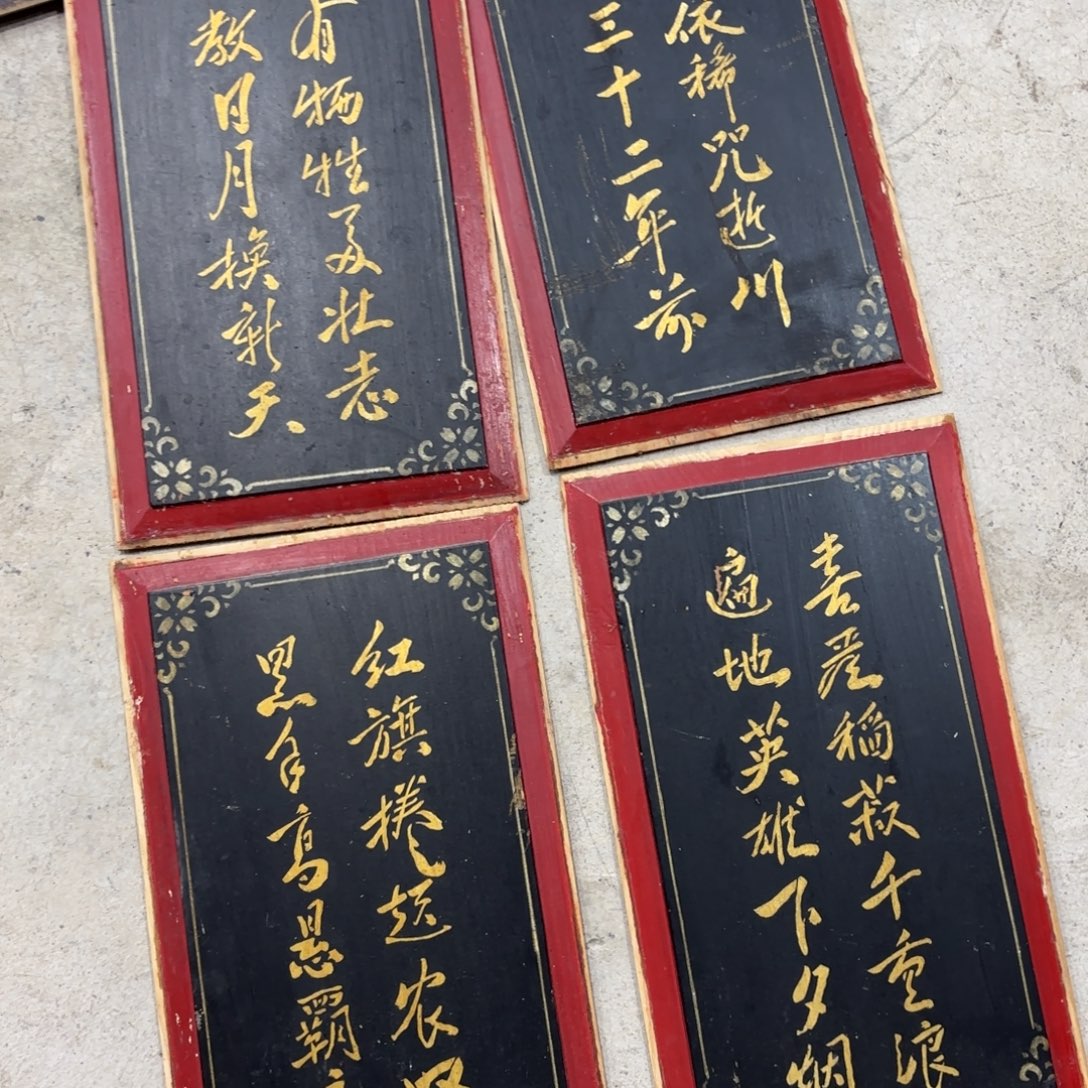 依稀咒逝川
三十二年前
红旗捲起农
黑手高悬霸
有牺牲多壮志
教日月换新天
喜看稻菽千重浪
遍地英雄下夕烟